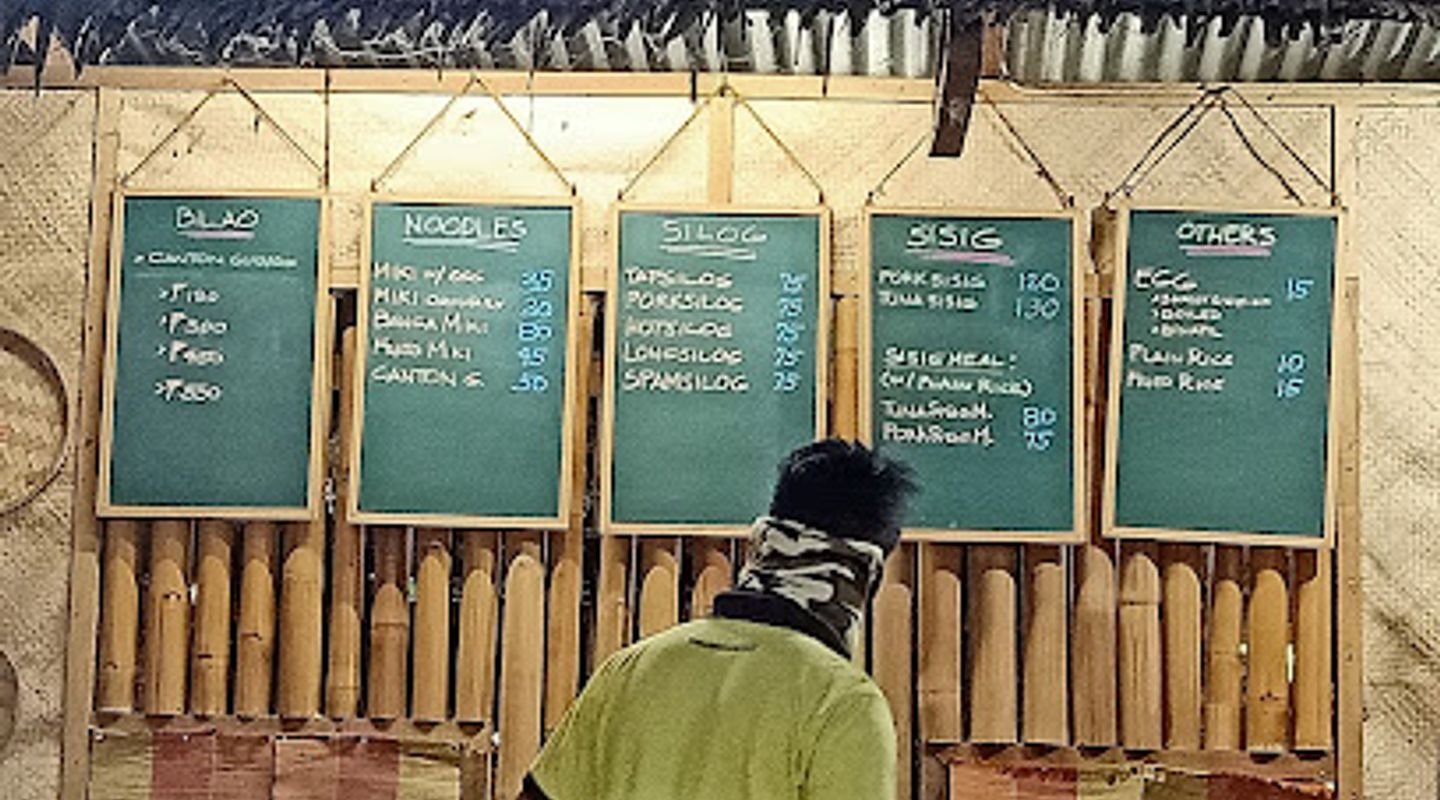 BILAO
CANTON GUISADO
NOODLES
MIKI W/ EGG 35
MIKI ORDINARY
BANGA MIKI 80
MIKI
CANTON G. 50
SILOG
TAPSILOG 75
PORKSILOG 75
HOTSILOG 75
LONGSILOG 75
SPAMSILOG 75
SISIG
PORK SISIG
TUNA SISIG 130
SISIG MEAL:
(W/ PLAIN RICE)
TUNA 80
PORK 75
OTHERS
EGG 15
>BOILED
PLAIN RICE 10
RICE 15